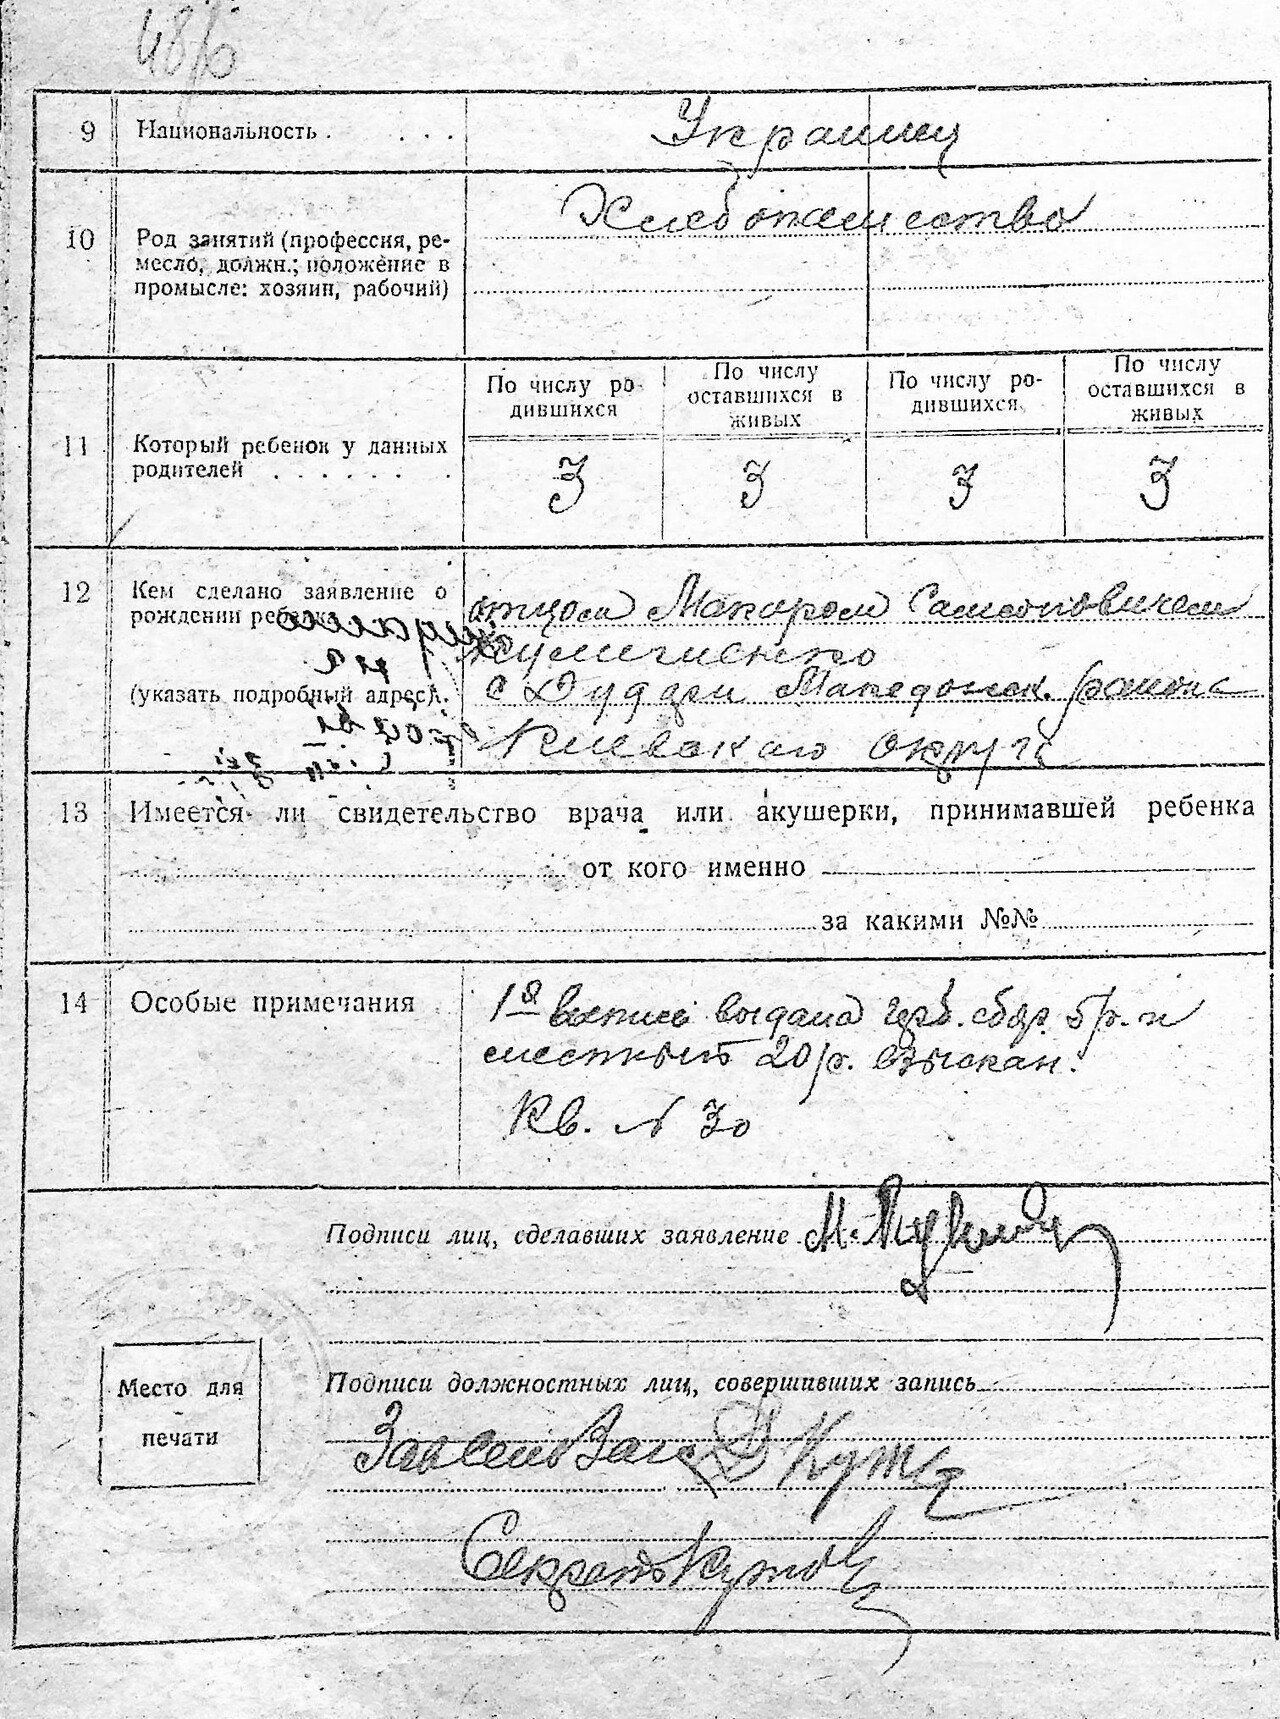 48/б
9 Национальность . . . . Украинец
10 Хлебопашество
Род занятий (профессия, ре-
месло, должн.; положение в
промысле: хозяин, рабочий)
11 Который ребенок у данных
родителей . . . . . . .
По числу ро-
дившихся
По числу
оставшихся в
живых
По числу ро-
дившихся
По числу
оставшихся в
живых
3 3 3 3
12 Кем сделано заявление о
рождении ребенка
(указать подробный адрес).
отцом Макаром Самсоновичем
с Дудари Македонск. района
Киевскаго округа
13 Имеется ли свидетельство врача или акушерки, принимавшей ребенка
от кого именно
за какими №№
14 Особые примечания
1я выпись выдана герб. сбор. 5 р. и
местный 20 р. взыскан.
Кв. N 30
Подписи лиц, сделавших заявление М.
Место для
печати
Подписи должностных лиц, совершивших запись
Секретарь